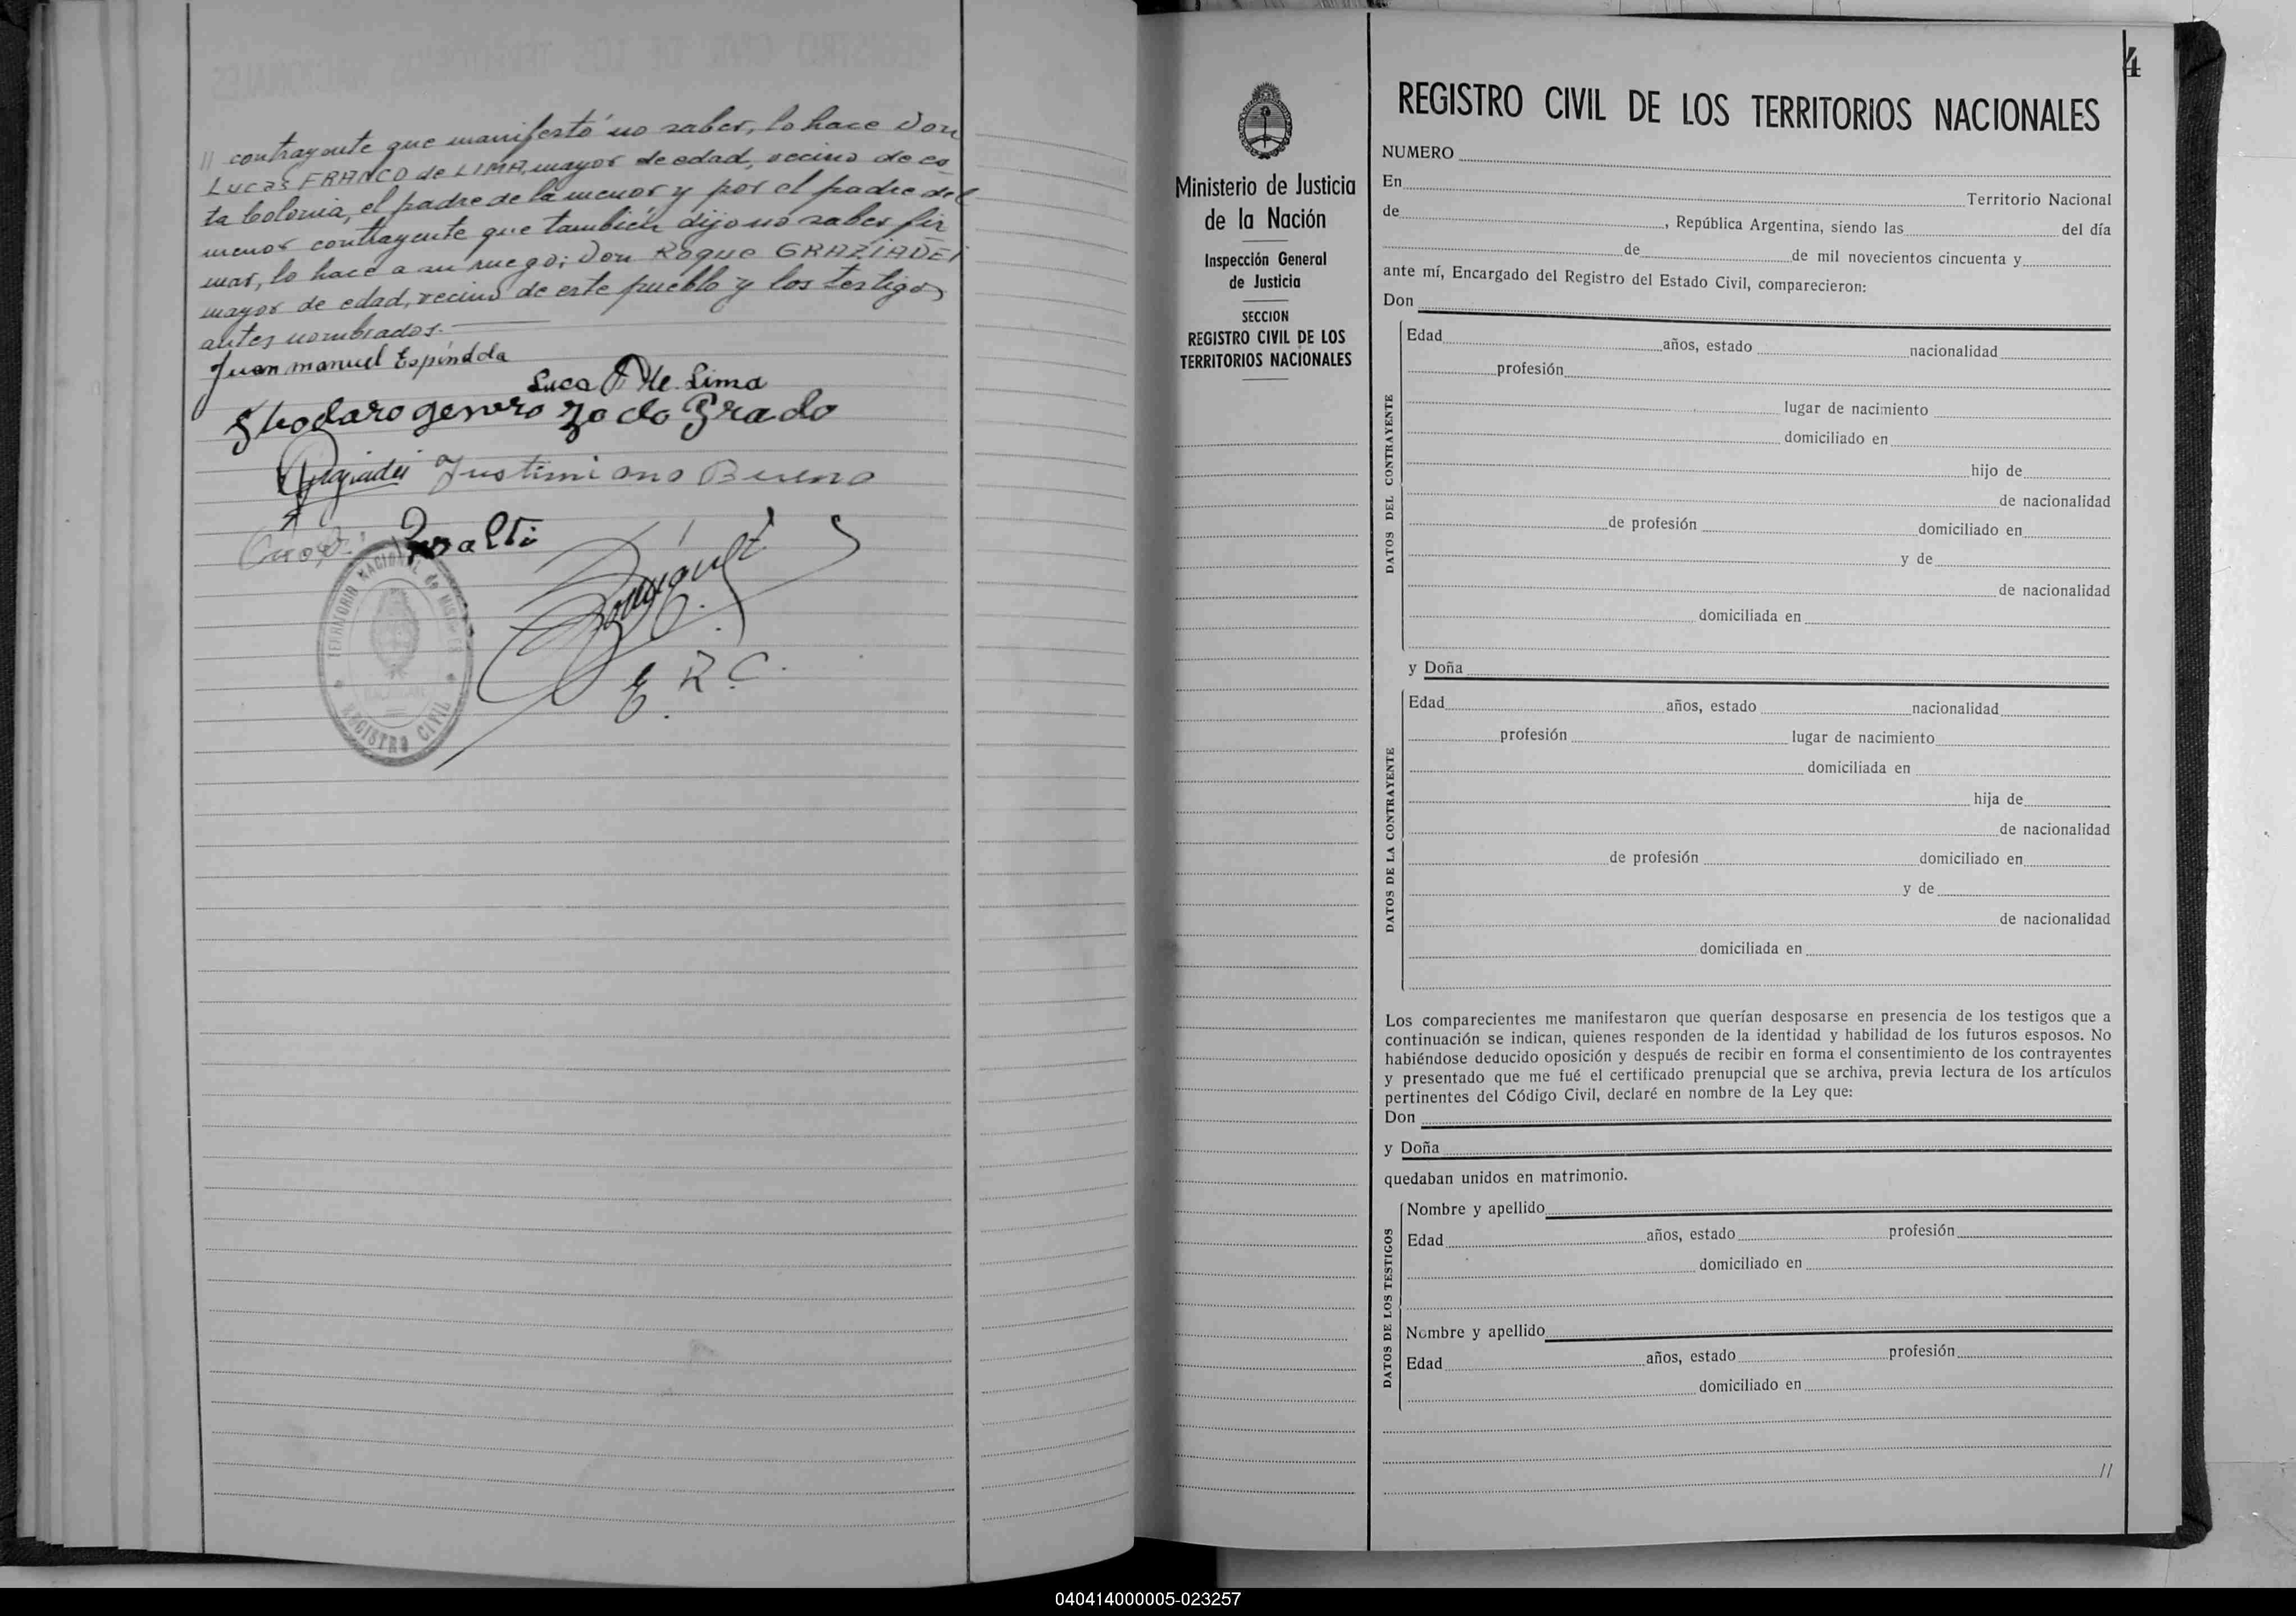 // contrayente que manifestó no saber, lo hace Don
Lucas FRANCO de LIMA, mayor de edad, vecino de es
ta Colonia, el padre de la menor y por el padre del
menor contrayente que también dijo no saber fir
mar, lo hace a su ruego; Don Roque GRAZIADEI
mayor de edad, vecino de este pueblo y los testigos
antes nombrados.
Juan manuel Espindda
Luca F de Lima
Justiniano Bueno
E. R. C.
TERRITORIO NACIONAL de MISIONES
REGISTRO CIVIL
4
Ministerio de Justicia
de la Nación
Inspección General
de Justicia
SECCION
REGISTRO CIVIL DE LOS
TERRITORIOS NACIONALES
REGISTRO CIVIL DE LOS TERRITORIOS NACIONALES
NUMERO
En Territorio Nacional
de , República Argentina, siendo las del día
de de mil novecientos cincuenta y
ante mí, Encargado del Registro del Estado Civil, comparecieron:
Don
DATOS DEL CONTRAYENTE
Edad años, estado nacionalidad
profesión
lugar de nacimiento
domiciliado en
hijo de
de nacionalidad
de profesión domiciliado en
y de
de nacionalidad
domiciliada en
y Doña
DATOS DE LA CONTRAYENTE
Edad años, estado nacionalidad
profesión lugar de nacimiento
domiciliada en
hija de
de nacionalidad
de profesión domiciliado en
y de
de nacionalidad
domiciliada en
Los comparecientes me manifestaron que querían desposarse en presencia de los testigos que a
continuación se indican, quienes responden de la identidad y habilidad de los futuros esposos. No
habiéndose deducido oposición y después de recibir en forma el consentimiento de los contrayentes
y presentado que me fué el certificado prenupcial que se archiva, previa lectura de los artículos
pertinentes del Código Civil, declaré en nombre de la Ley que:
Don
y Doña
quedaban unidos en matrimonio.
DATOS DE LOS TESTIGOS
Nombre y apellido
Edad años, estado profesión
domiciliado en
Nombre y apellido
Edad años, estado profesión
domiciliado en
//
040414000005-023257